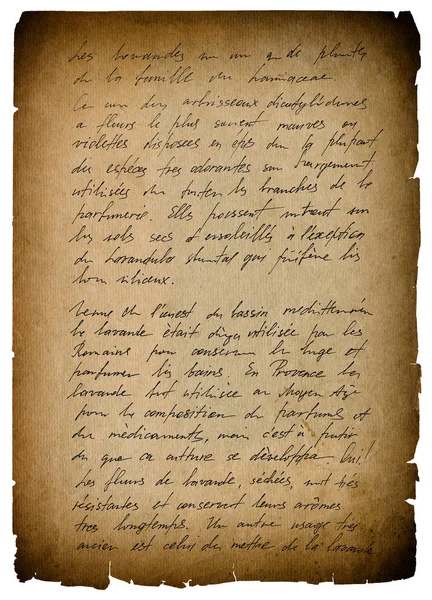 Les lavandes un un g de plantes
de la famille du lamiaceae
Ce un des arbrisseaux dicotylédones
a fleurs le plus savent mauves ou
violettes disposées en épis du la plupart
des espèces tres odorantes sun largement
utilisées du toutes les branches de la
parfumerie. Elles poussent surtout sur
les sols secs et ensoleillés à l'exception
du lavandula stuntas qui préfère les
silicieux.
Venue de l'ouest du bassin mediterranéen
le lavande était déja utilisée par les
Romains pour conserver le linge et
parfumer les bains. En Provence la
lavande fut utilisée au Moyen Age
pour la composition de parfums et
du médicaments, mais c'est à partir
du que ca culture se développa. Oui!
Les fleurs de lavande, séchées, sont tres
résistantes et conservent leurs arômes
tres longtemps. Un autre usage tres
ancien est celui du mettre de la lavande